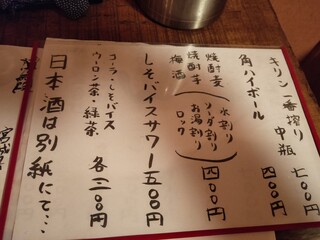 キリン一番搾り 中瓶 七〇〇円
角ハイボール 四〇〇円
焼酎麦
焼酎芋
梅酒
水割り
ソーダ割り
お湯割り
ロック
四〇〇円
しそバイスサワー 五〇〇円
コーラ・しそバイス
ウーロン茶・緑茶
各三〇〇円
日本酒は別紙にて…